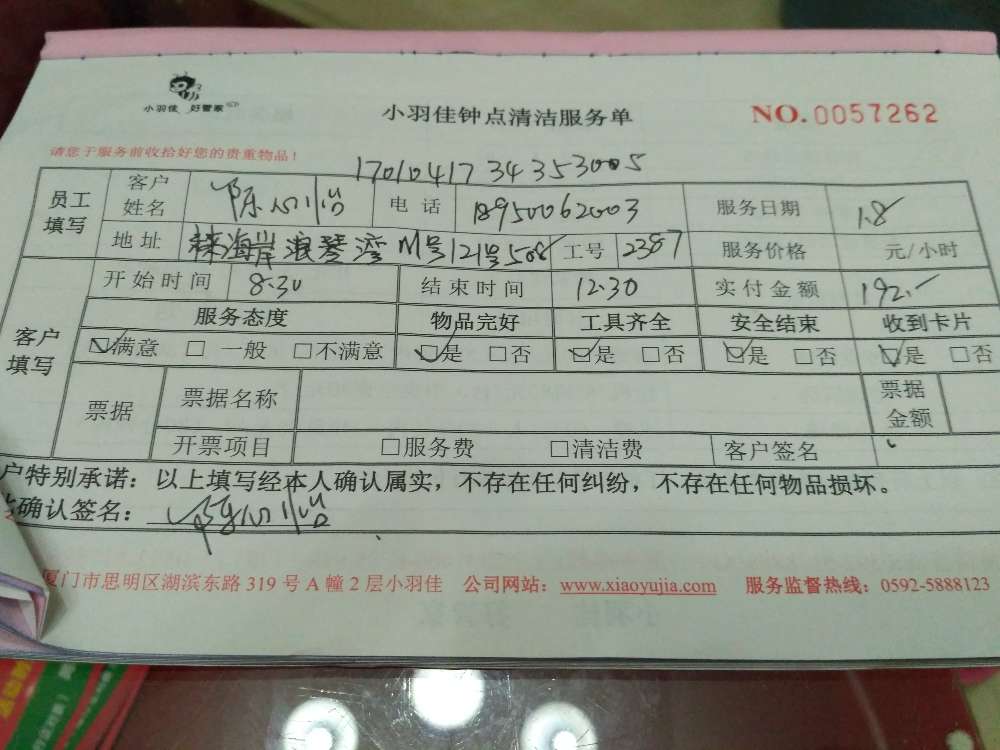 小羽佳 好管家
小羽佳钟点清洁服务单
NO. 0057262
请您于服务前收拾好您的贵重物品！
17010417 34353005
员工填写 客户姓名 陈心怡 电话 18950062003 服务日期 1.8
地址 海岸浪琴湾 号121号508 工号 2387 服务价格 元/小时
客户填写 开始时间 8.30 结束时间 12.30 实付金额 192.-
服务态度 物品完好 工具齐全 安全结束 收到卡片
☑满意 □一般 □不满意 ☑是 □否 ☑是 □否 ☑是 □否 ☑是 □否
票据 票据名称 票据金额
开票项目 □服务费 □清洁费 客户签名
户特别承诺：以上填写经本人确认属实，不存在任何纠纷，不存在任何物品损坏。
确认签名：陈心怡
厦门市思明区湖滨东路 319 号 A 幢 2 层小羽佳 公司网站：www.xiaoyujia.com 服务监督热线：0592-5888123